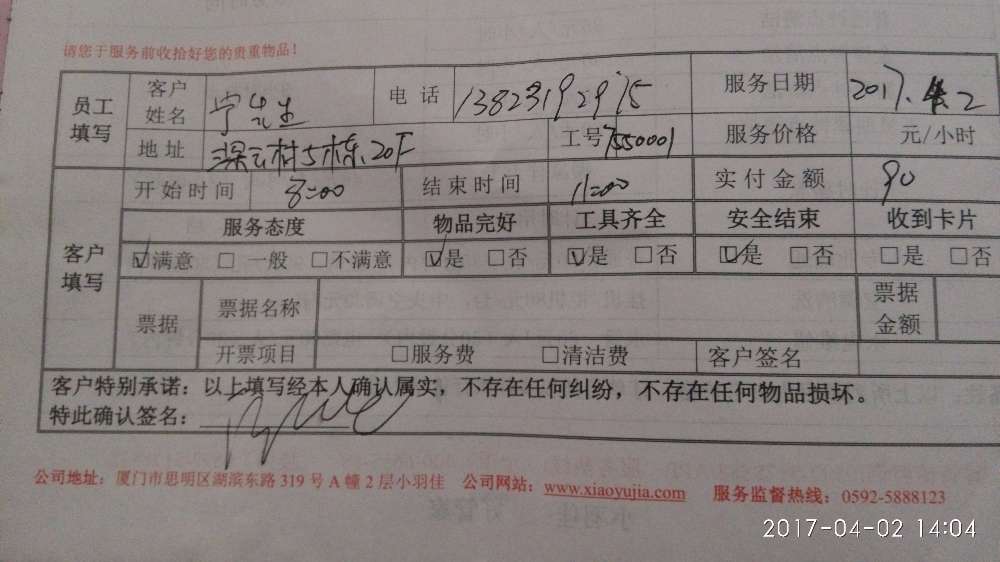 请您于服务前收拾好您的贵重物品!
员工填写 客户姓名 宁先生 电话 13823192975 服务日期 2017.4.2
地址 深云村5栋.20F 工号 7550001 服务价格 元/小时
客户填写 开始时间 8:00 结束时间 11:00 实付金额 90
服务态度 物品完好 工具齐全 安全结束 收到卡片
☑满意 □ 一般 □不满意 ☑是 □否 ☑是 □否 ☑是 □否 □是 □否
票据 票据名称 票据金额
开票项目 □服务费 □清洁费 客户签名
客户特别承诺:以上填写经本人确认属实,不存在任何纠纷,不存在任何物品损坏。
特此确认签名:
公司地址:厦门市思明区湖滨东路 319 号 A 幢 2 层小羽佳 公司网站:www.xiaoyujia.com 服务监督热线:0592-5888123
2017-04-02 14:04